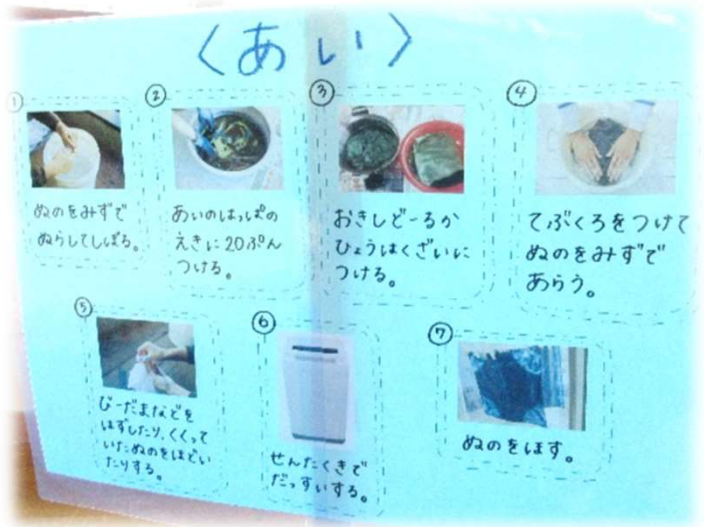 〈あい〉
①
ぬのをみずで
ぬらしてしぼる。
②
あいのはっぱの
えきに20ぷん
つける。
③
おきしどーるか
ひょうはくざいに
つける。
④
てぶくろをつけて
ぬのをみずで
あらう。
⑤
びーだまなどを
はずしたり、くくって
いたぬのをほどい
たりする。
⑥
せんたくきで
だっすいする。
⑦
ぬのをほす。